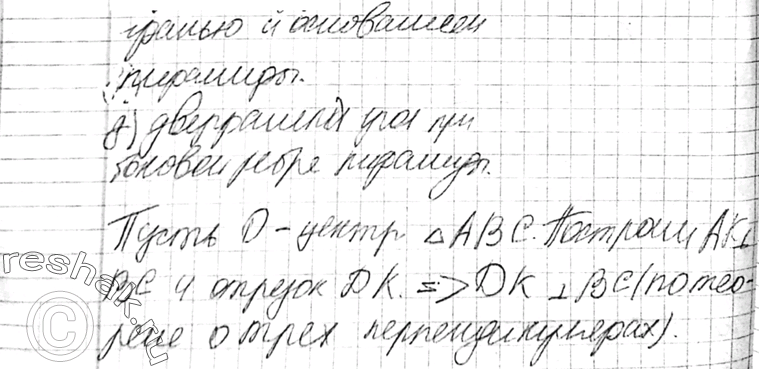 гранью и основанием
пирамиды.
д) двугранный угол при
боковом ребре пирамиды.
Пусть О - центр △ABC. Построим AK⊥
BC и отрезок DK. => DK ⊥ BC (по тео-
реме о трех перпендикулярах).
reshak.ru